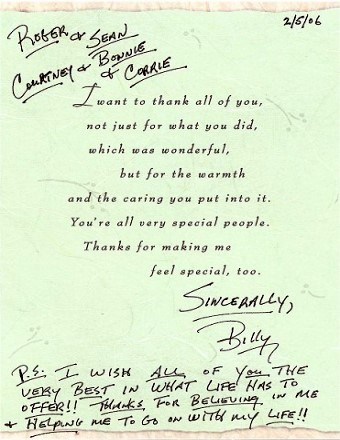 2/5/06
ROGER & SEAN
COURTNEY & BONNIE
& CORRIE
I want to thank all of you,
not just for what you did,
which was wonderful,
but for the warmth
and the caring you put into it.
You're all very special people.
Thanks for making me
feel special, too.
SINCERALLY,
Billy
P.S: I WISH ALL OF YOU THE
VERY BEST IN WHAT LIFE HAS TO
OFFER!! THANKS FOR BELIEVING IN ME
& HELPING ME TO GO ON WITH MY LIFE!!